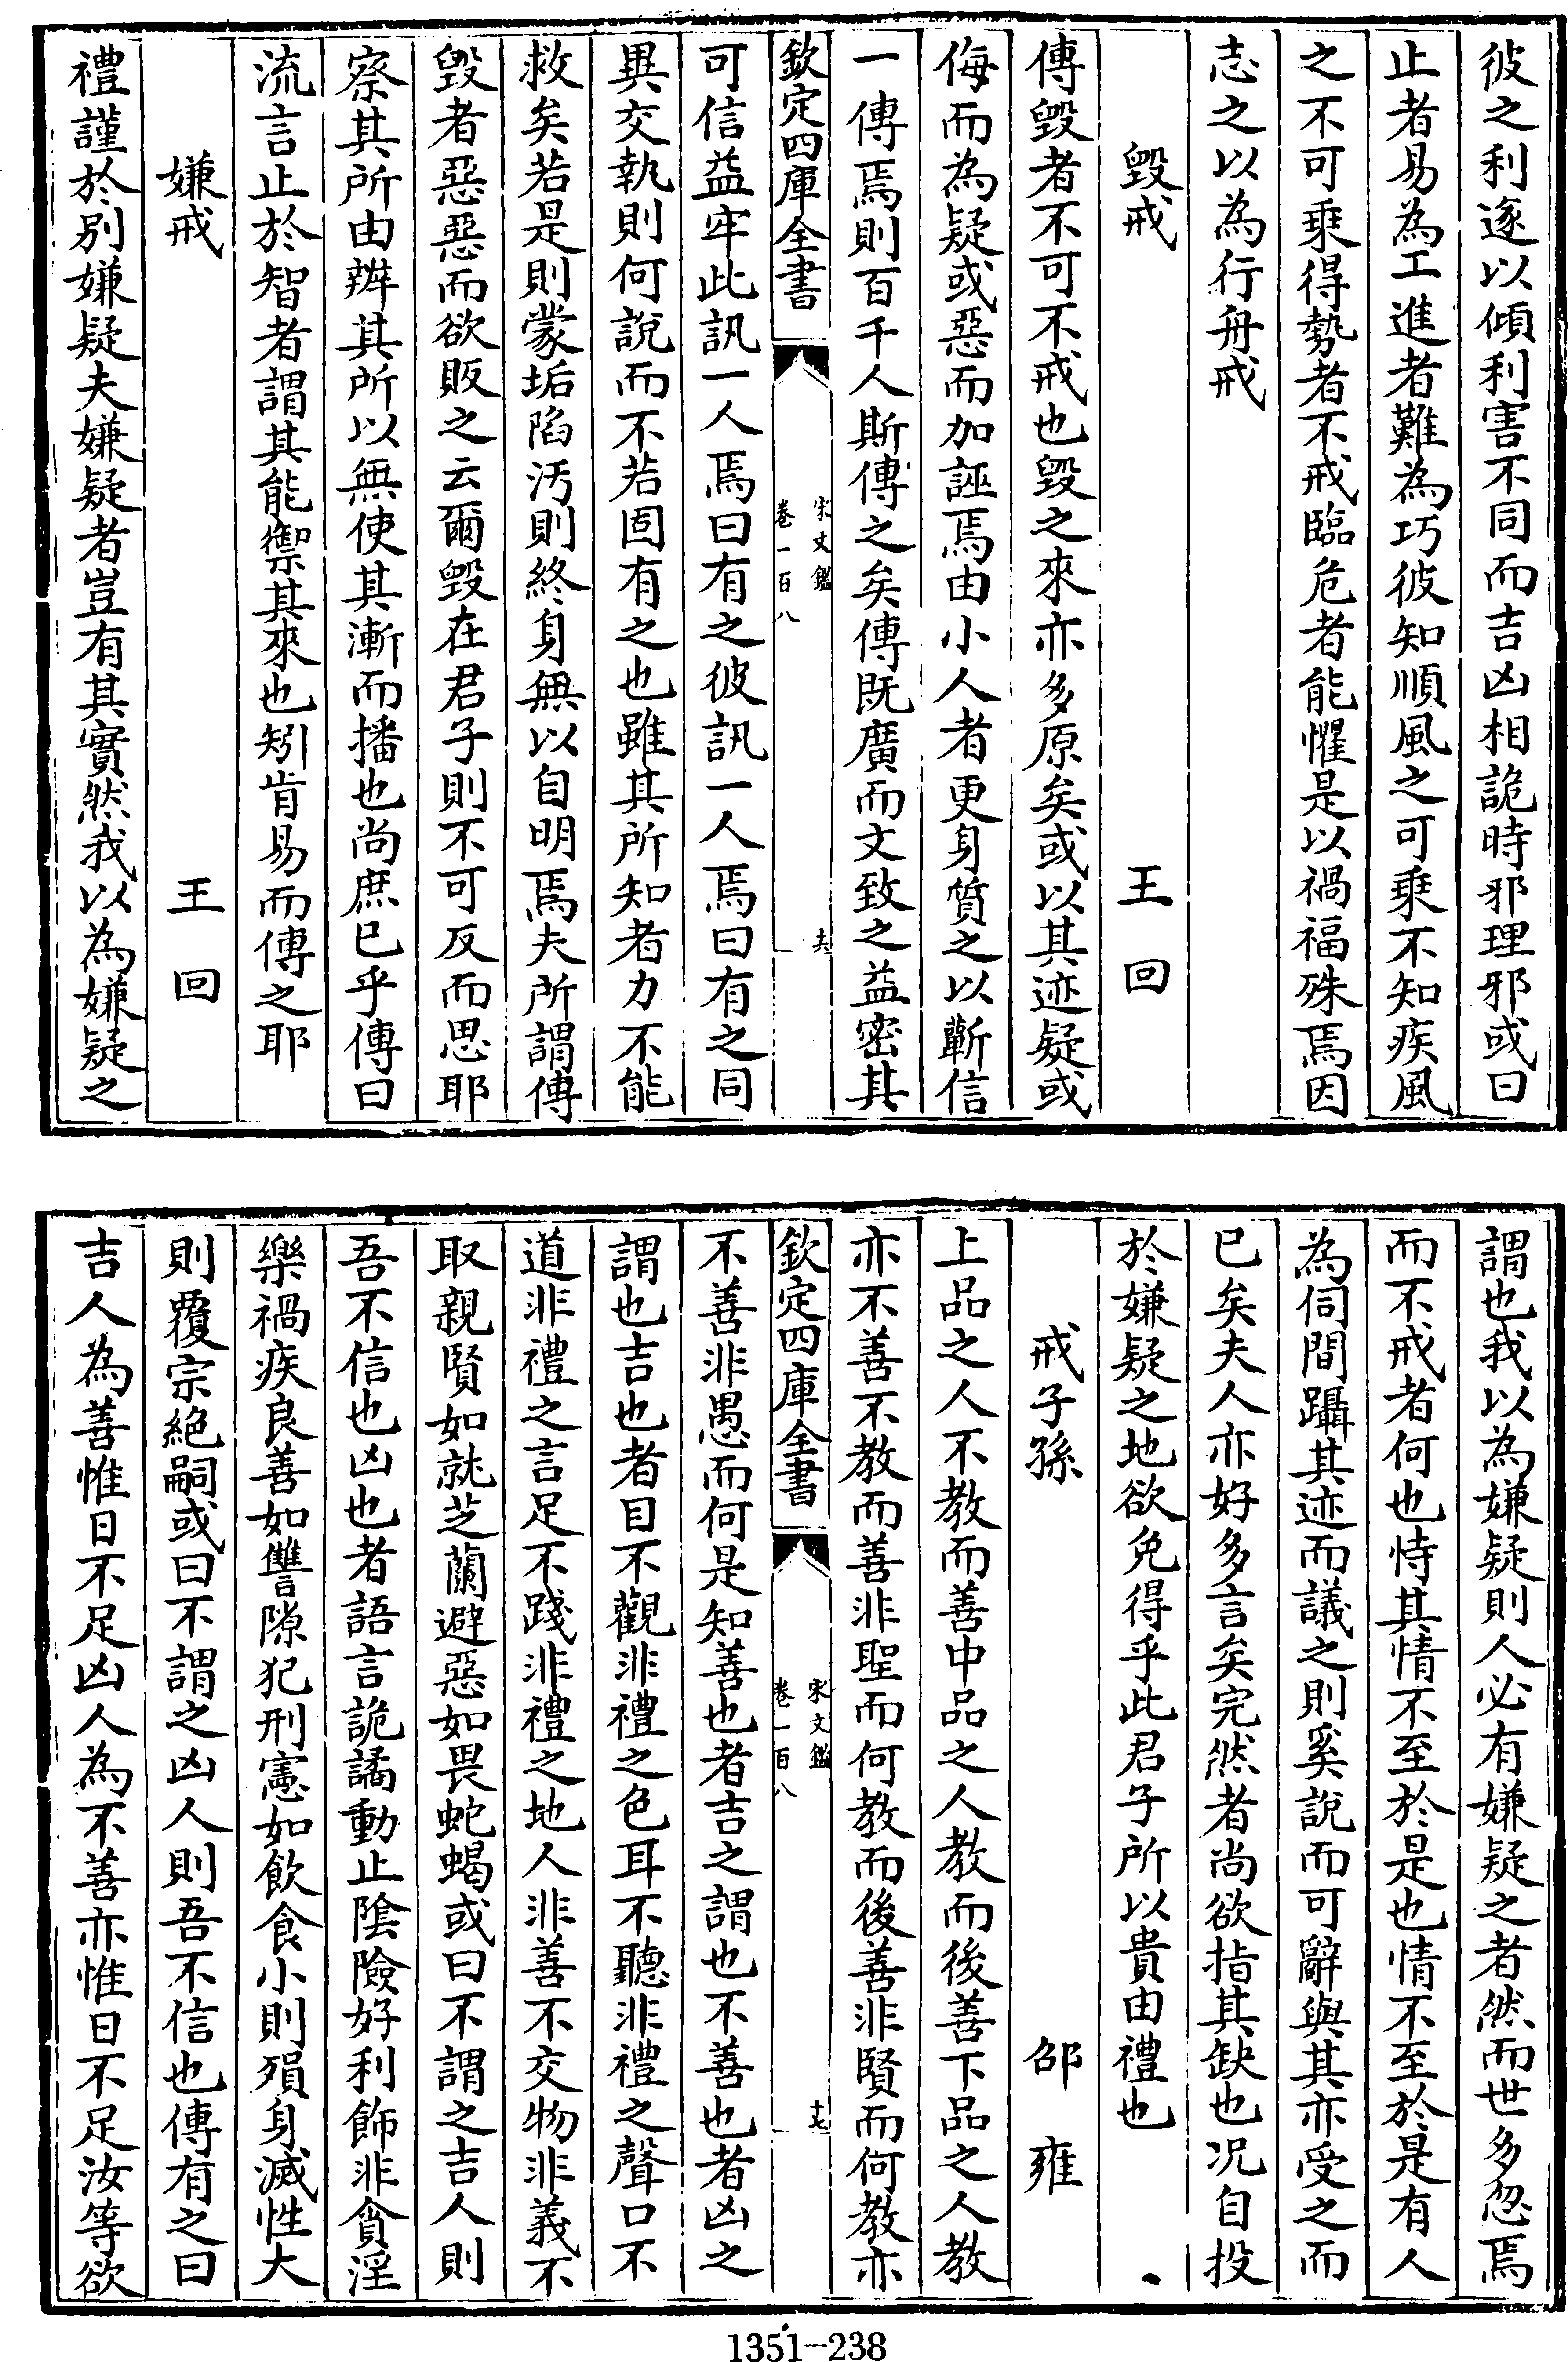 彼之利遂以傾利害不同而吉凶相詭時邪理邪或曰
止者易為工進者難為巧彼知順風之可乘不知疾風
之不可乘得勢者不戒臨危者能懼是以禍福殊焉因
志之以為行舟戒
毀戒　王回
傳毀者不可不戒也毀之來亦多原矣或以其迹疑或
侮而為疑或惡而加誣焉由小人者更身質之以蘄信
一傳焉則百千人斯傳之矣傳既廣而文致之益密其
欽定四庫全書
宋文鑑
卷一百八
十六
可信益牢此訊一人焉曰有之彼訊一人焉曰有之同
異交執則何說而不若固有之也雖其所知者力不能
救矣若是則蒙垢陷汚則終身無以自明焉夫所謂傳
毀者惡惡而欲販之云爾毀在君子則不可反而思耶
察其所由辨其所以無使其漸而播也尚庶已乎傳曰
流言止於智者謂其能禦其來也矧肯易而傳之耶
嫌戒　王回
禮謹於別嫌疑夫嫌疑者豈有其實然我以為嫌疑之
謂也我以為嫌疑則人必有嫌疑之者然而世多忽焉
而不戒者何也恃其情不至於是也情不至於是有人
為伺間躡其迹而議之則奚說而可辭與其亦受之而
已矣夫人亦好多言矣完然者尚欲指其缺也况自投
於嫌疑之地欲免得乎此君子所以貴由禮也
戒子孫　邵雍
上品之人不教而善中品之人教而後善下品之人教
亦不善不教而善非聖而何教而後善非賢而何教亦
欽定四庫全書
宋文鑑
卷一百八
十七
不善非愚而何是知善也者吉之謂也不善也者凶之
謂也吉也者目不觀非禮之色耳不聽非禮之聲口不
道非禮之言足不踐非禮之地人非善不交物非義不
取親賢如就芝蘭避惡如畏蛇蝎或曰不謂之吉人則
吾不信也凶也者語言詭譎動止陰險好利飾非貪淫
樂禍疾良善如讐隙犯刑憲如飲食小則殞身滅性大
則覆宗絕嗣或曰不謂之凶人則吾不信也傳有之曰
吉人為善惟日不足凶人為不善亦惟日不足汝等欲
1351-238